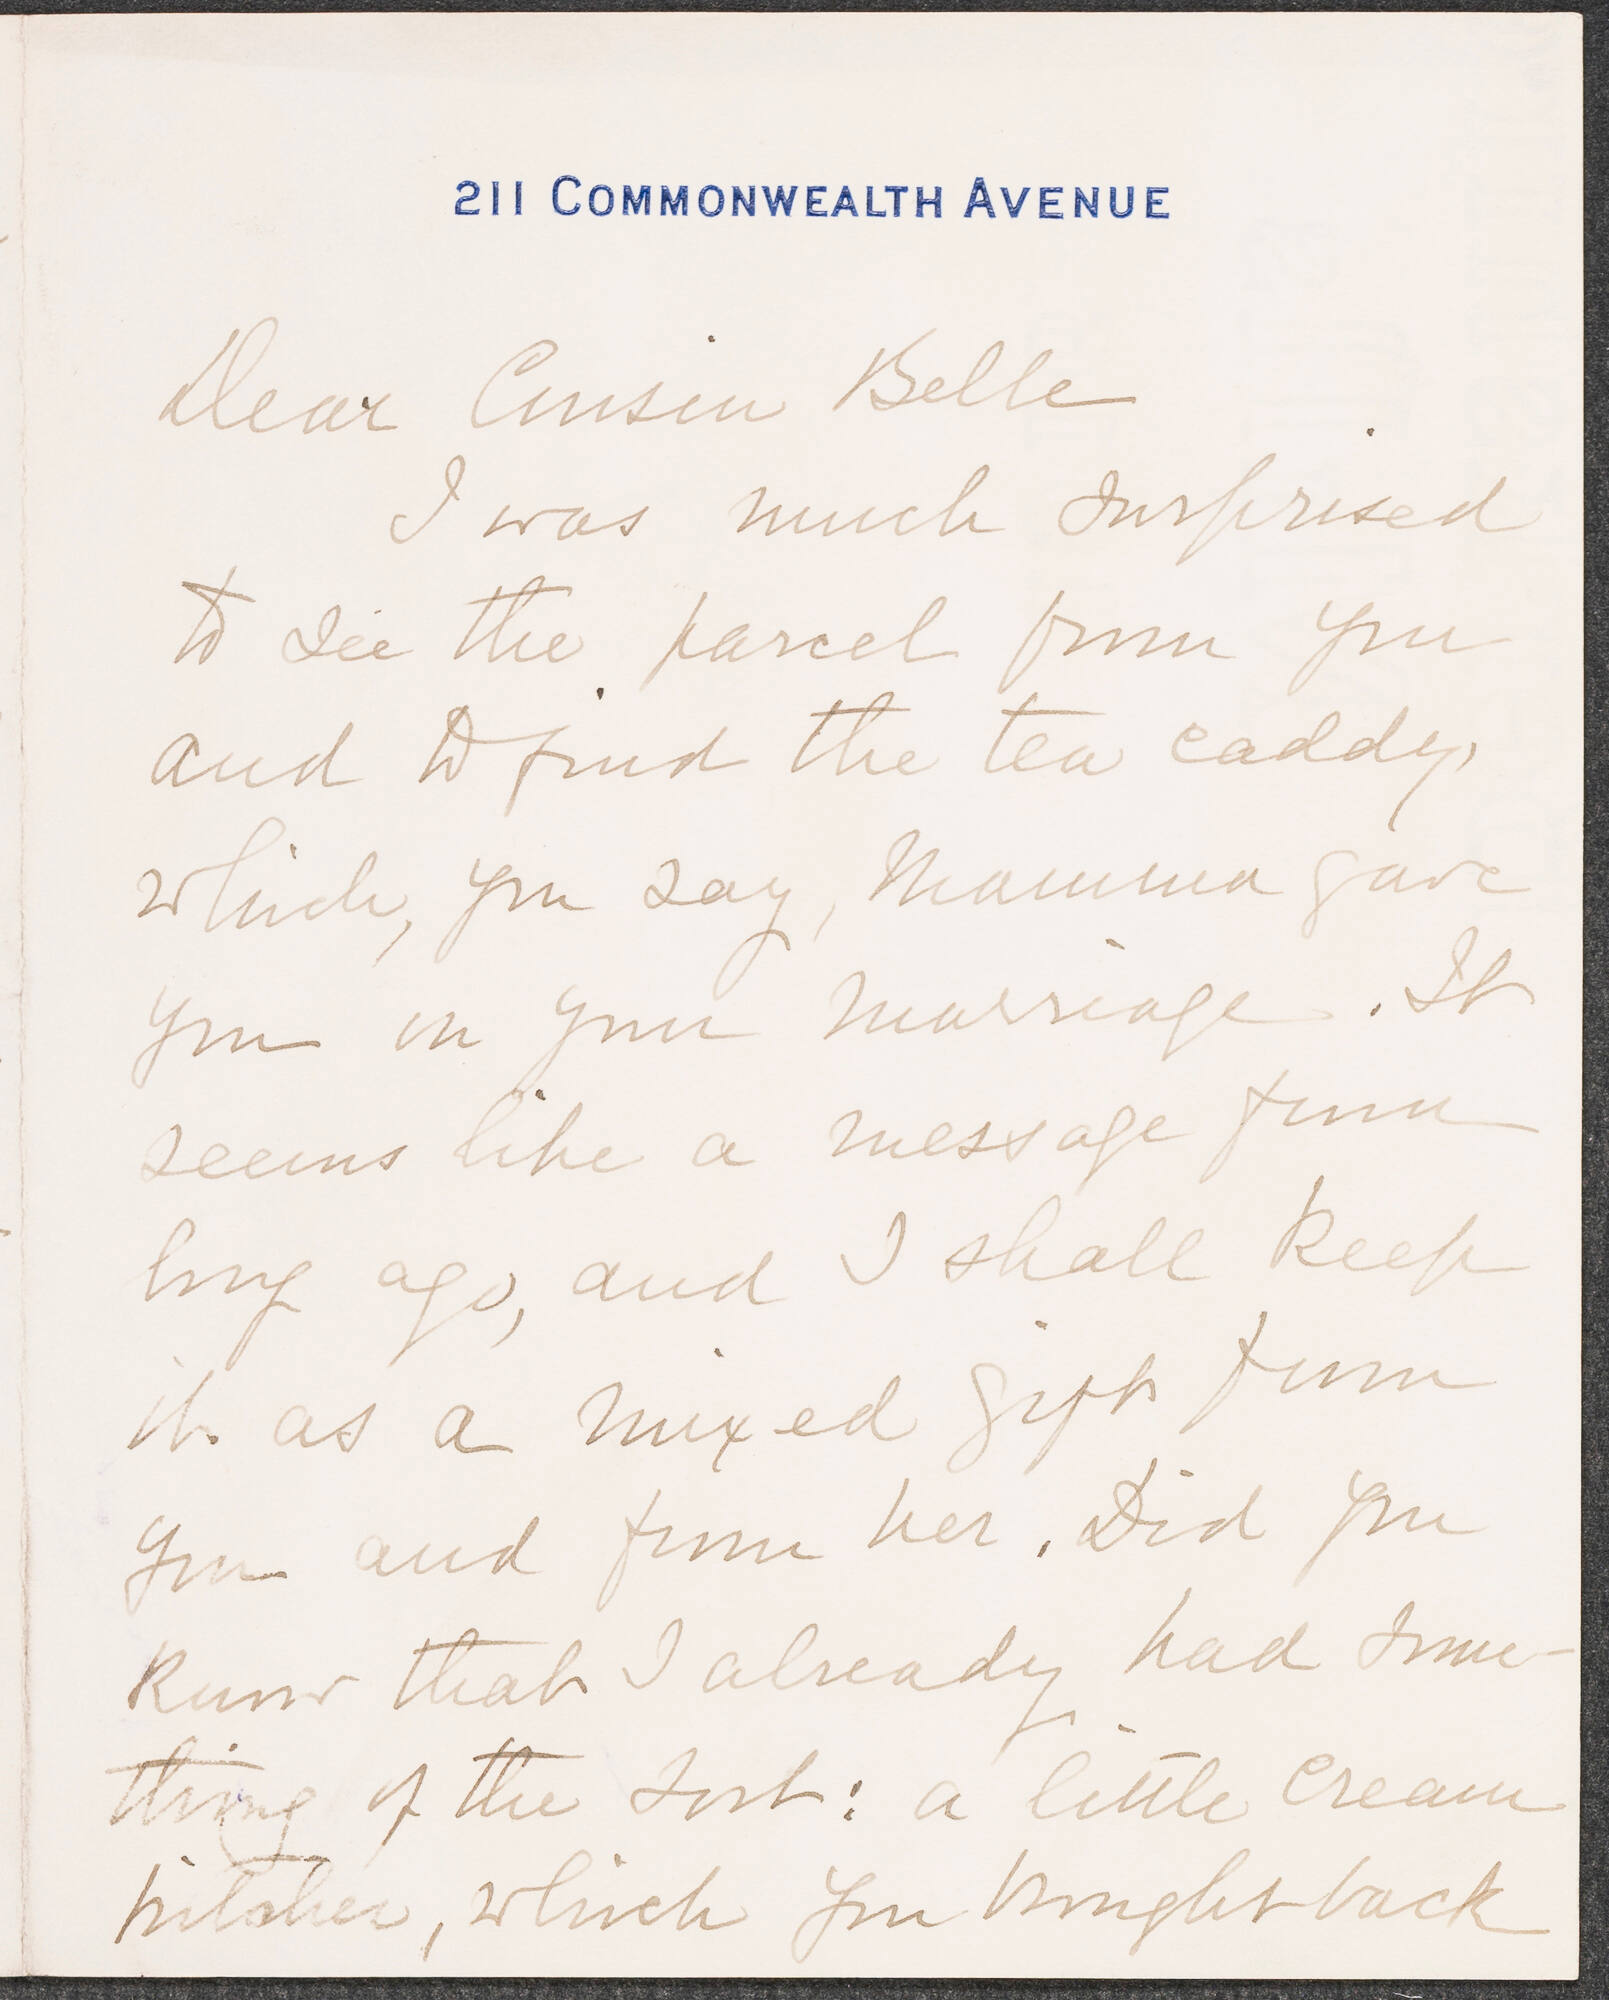 211 COMMONWEALTH AVENUE
Dear Cousin Belle
I was much surprised
to see the parcel from you
and to find the tea caddy,
which, you say, Mamma gave
you on your marriage. It
seems like a message from
long ago, and I shall keep
it as a mixed gift from
you and from her. Did you
know that I already had some-
thing of the sort: a little cream
pitcher, which you brought back